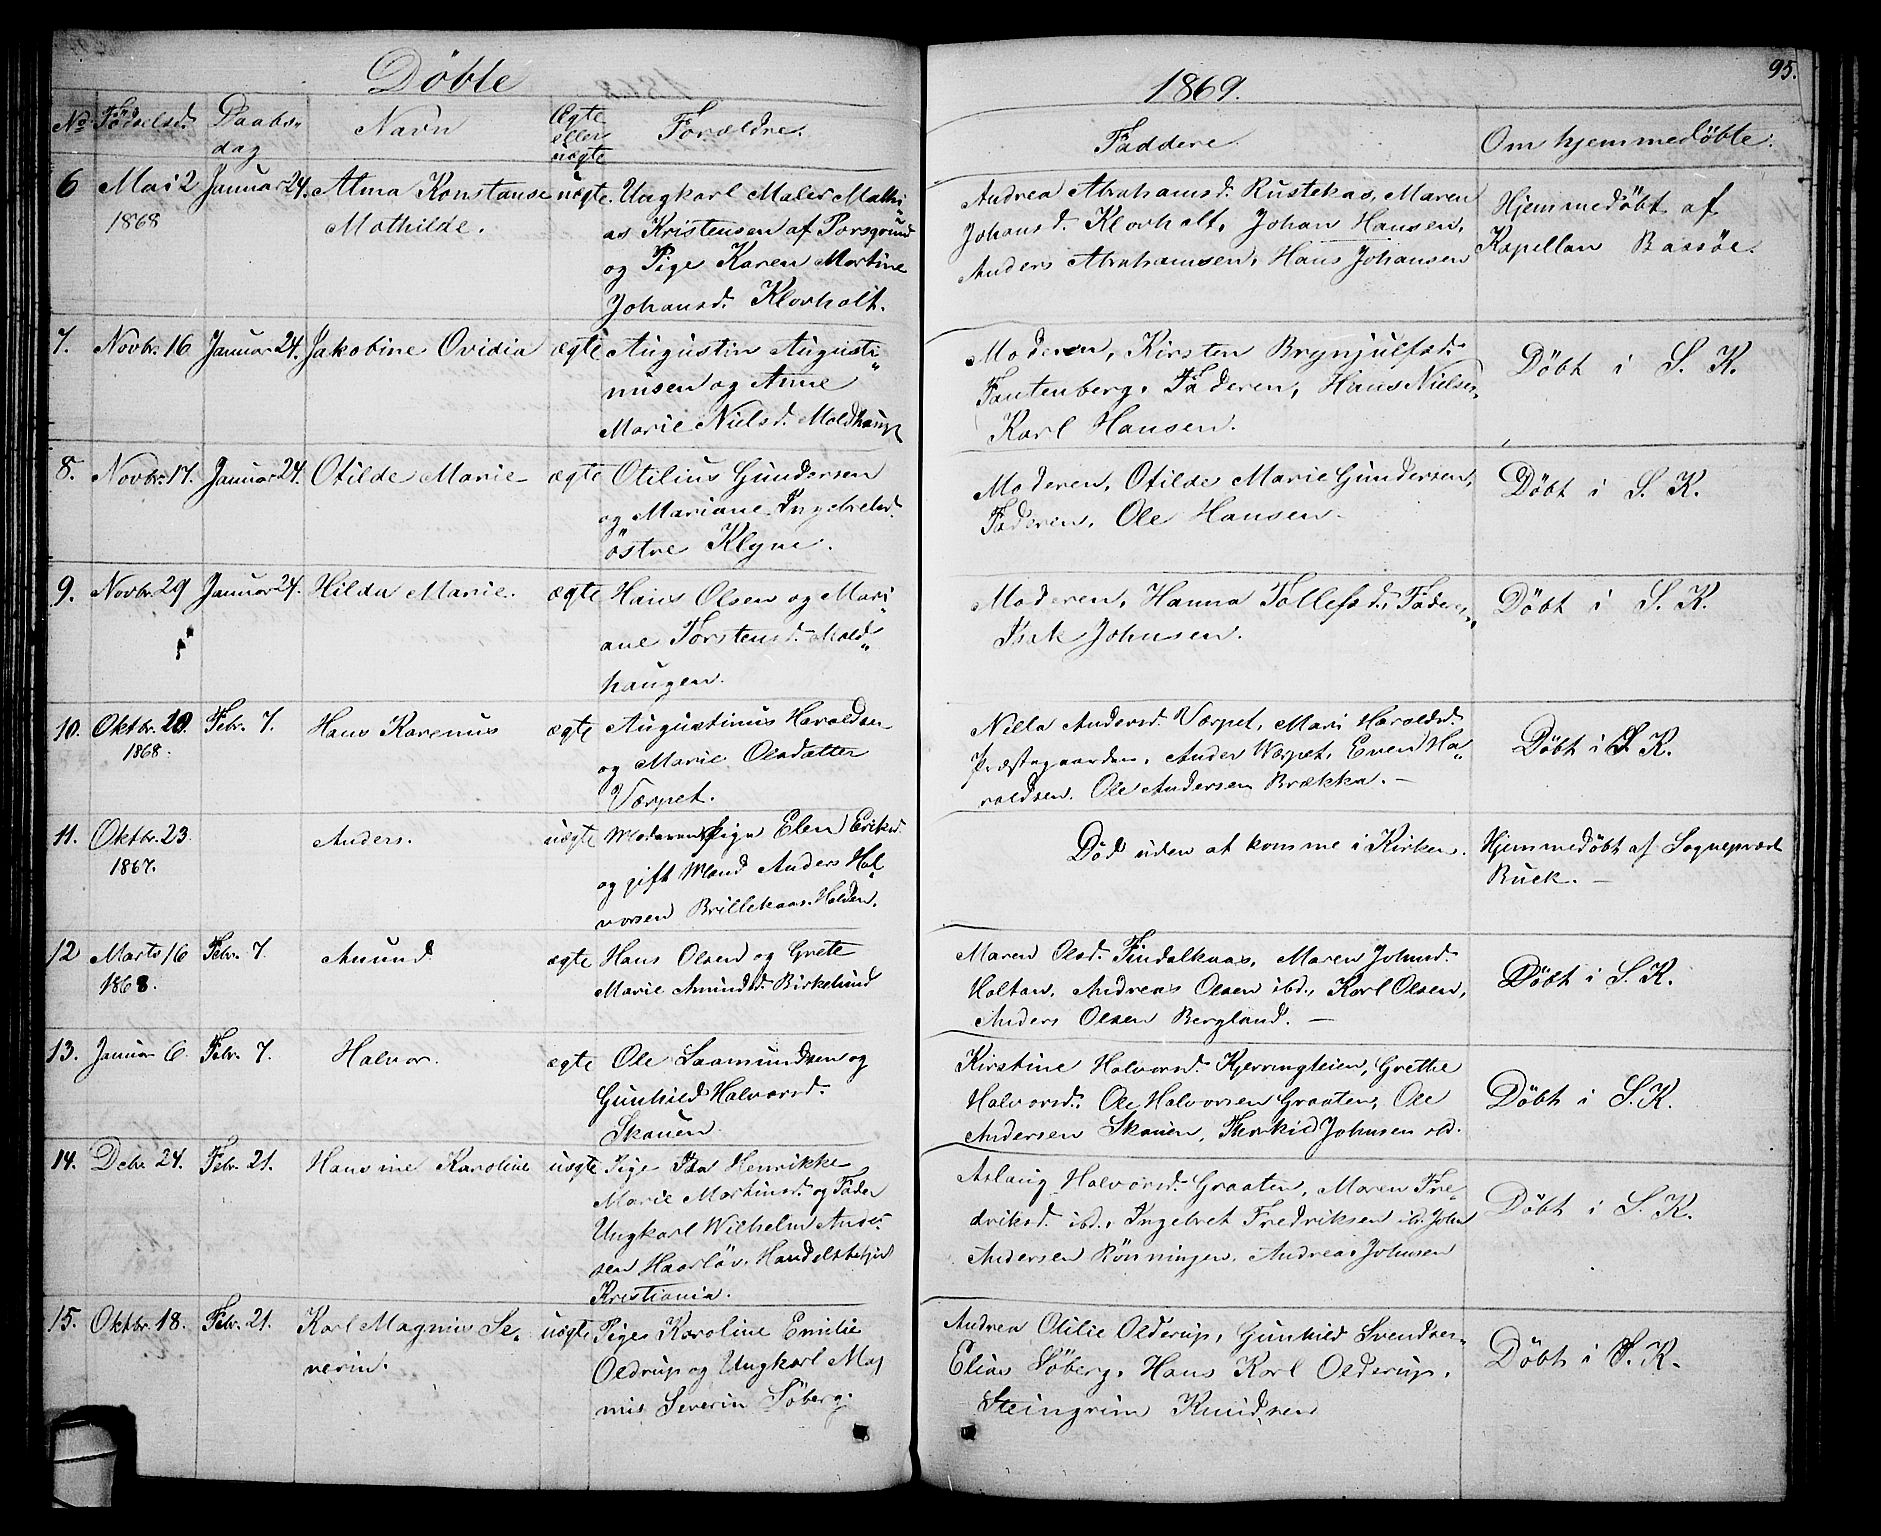 Döbte 1869. 95.
No Födselsd. Daabsdag Navn Ægte eller uægte Forældre. Faddere. Om hjemmedöbte.
6 Mai 2 Januar 24. Alma Konstanse uægte. Ungkarl Maler Mathi-
1868 Mathilde. as Kristensen af Porsgrund
og Pige Karen Martine
Johansd. Klovholt.
Andrea Abrahamsd. Rustekas, Maren
Johansd. Klovholt, Johan Hansen,
Anders Abrahamsen, Hans Johansen
Hjemmedöbt af
Kapellan Bassöe.
7. Novbr. 16 Januar 24. Jakobine Ovidia ægte Augustin Augusti-
nusen og Anne
Marie Nielsd. Moldhaug
Moderen, Kirsten Brynjulfsd.
Fantenberg, Faderen, Hans Nielsen
Karl Hansen.
Döbt i S. K.
8. Novbr. 17. Januar 24. Otilde Marie ægte Otilius Gundersen
og Mariane Ingebretsd.
östre Klyve.
Moderen, Otilde Marie Gundersen,
Faderen, Ole Hansen.
Döbt i S. K.
9. Novbr. 29 Januar 24. Hilda Marie. ægte Hans Olsen og Mari-
ane Torstensd. Mold-
haugen.
Moderen, Hanna Tollefsd., Fader-,
Isak Johnsen.
Döbt i S. K.
10. Oktbr. 20. Febr. 7. Hans Karenus ægte Augustinus Haroldsen
1868. og Marie Olsdatter
Værpet.
Nilla Andersd. Værpet, Mari Haroldsd.
Præstegaarden, Anders Værpet, Even Ha-
roldsen. Ole Andersen Brækka. —
Döbt i S. K.
11. Oktbr. 23. Anders. uægte Moderen Pige Elen Eriksd.
1867. og gift Mand Anders Hal-
vorsen Brillekaas, Holden.
Död uden at komme i Kirken.
Hjemmedöbt af Sognepræst
Buck. —
12 Marts 16 Febr. 7. Amund ægte Hans Olsen og Grete
1868. Marie Amundsd. Birkelund
Maren Olsd. Findalkaas, Maren Johnsd.
Holtan, Andreas Olsen ibd., Karl Olsen,
Anders Olsen Bergland. —
Döbt i S. K.
13. Januar 6. Febr. 7. Halvor. ægte Ole Saamundsen og
Gunhild Halvorsd.
Skauen.
Kirstine Halvorsd. Kjerringteien, Grethe
Halvorsd., Ole Halvorsen Graaten, Ole
Andersen Skauen, Johnsen
Döbt i S. K.
14. Debr. 24. Febr. 21. Hansine Karoline uægte Pige Ida Henrikke
Marie Martinsd. og Fader
Ungkarl Wilhelm Ander-
sen Haarlöv, Handelsbetjent
Kristiania.
Aslaug Halvorsd. Graaten, Maren Fre-
driksd. ibd., Ingebret Fredriksen ib. John
Andersen Rönningen, Andreas Johnsen
Döbt i S. K.
15. Oktbr. 18. Febr. 21. Karl Magnus Se- uægte Piges Karoline Emilie
verin. Oldrup og Ungkarl Mag
nus Severin Söberg.
Andrea Otilie Olderup, Gunhild Svendsen
Elias Söberg, Hans Karl Olderup,
Steingrim Knudsen
Döbt i S. K.